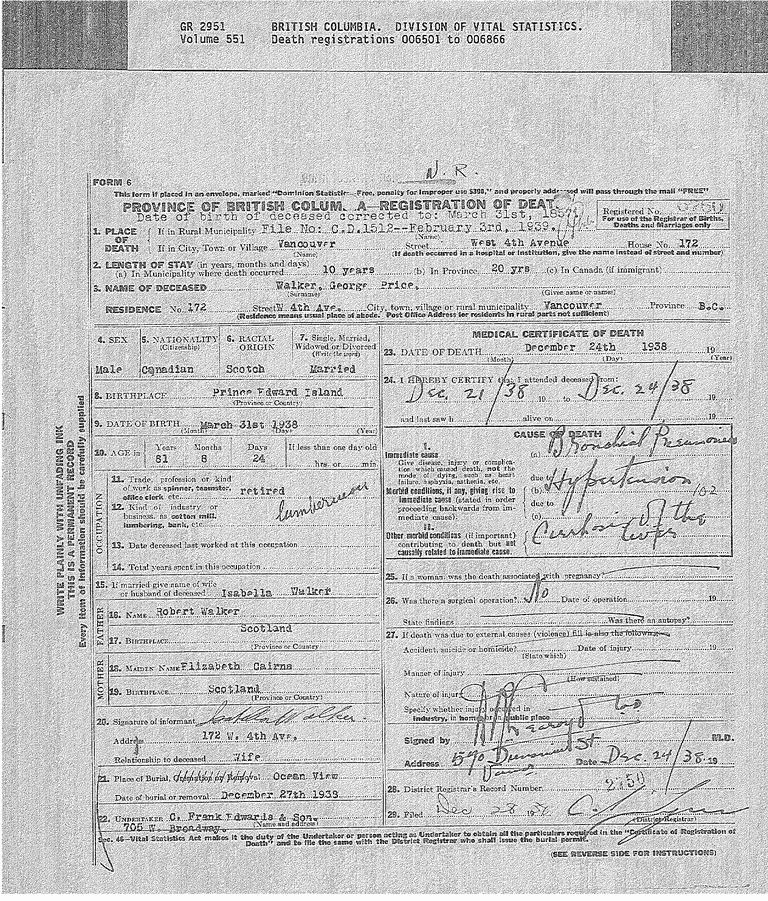 GR 2951 BRITISH COLUMBIA. DIVISION OF VITAL STATISTICS.
Volume 551 Death registrations 006501 to 006866
N. R.
FORM 6
This form if placed in an envelope, marked "Dominion Statistics—Free, penalty for improper use $300," and properly addressed will pass through the mail "FREE"
PROVINCE OF BRITISH COLUM. A—REGISTRATION OF DEAT.
Date of birth of deceased corrected to: March 31st, 1857.
Registered No.
For use of the Registrar of Births, Deaths and Marriages only
1. PLACE OF DEATH
If in Rural Municipality File No: C.D.1512--February 3rd, 1939.
(Name)
If in City, Town or Village Vancouver Street West 4th Avenue House No. 172
(Name) (If death occurred in a hospital or institution, give the name instead of street and number)
2. LENGTH OF STAY (in years, months and days)
(a) In Municipality where death occurred 10 years (b) In Province 20 yrs (c) In Canada (if immigrant)
3. NAME OF DECEASED Walker, George Price,
(Surname) (Given name or names)
RESIDENCE No 172 Street W 4th Ave. City, town, village or rural municipality Vancouver Province B.C.
(Residence means usual place of abode. Post Office Address for residents in rural parts not sufficient)
4. SEX
Male
5. NATIONALITY (Citizenship)
Canadian
6. RACIAL ORIGIN
Scotch
7. Single, Married, Widowed or Divorced (Write the word)
Married
8. BIRTHPLACE Prince Edward Island
(Province or Country)
9. DATE OF BIRTH March 31st 1938
(Month) (Day) (Year)
10. AGE in Years Months Days If less than one day old
81 8 24 hrs. or min.
OCCUPATION
11. Trade, profession or kind of work as spinner, teamster, office clerk, etc. retired
12. Kind of industry or business, as cotton mill, lumbering, bank, etc. Lumberman
13. Date deceased last worked at this occupation
14. Total years spent in this occupation
15. If married give name of wife or husband of deceased Isabella Walker
FATHER
16. NAME Robert Walker
17. BIRTHPLACE Scotland
(Province or Country)
MOTHER
18. MAIDEN NAME Elizabeth Cairns
19. BIRTHPLACE Scotland
(Province or Country)
20. Signature of informant Isabella Walker.
Address 172 W. 4th Ave.
Relationship to deceased Wife
21. Place of Burial, Cremation or Removal Ocean View
Date of burial or removal December 27th 1938
22. UNDERTAKER C. Frank Edwards & Son.
(Name and address)
705 W. Broadway.
MEDICAL CERTIFICATE OF DEATH
23. DATE OF DEATH December 24th 1938 19
(Month) (Day) (Year)
24. I HEREBY CERTIFY that I attended deceased from:
Dec. 21/38 19 to Dec. 24/38 19
and last saw h alive on 19
CAUSE OF DEATH
I.
Immediate cause (a) Bronchial Pneumonia
Give disease, injury or complication which caused death, not the mode of dying, such as heart failure, asphyxia, asthenia, etc.
due to
Morbid conditions, if any, giving rise to immediate cause (stated in order proceeding backwards from immediate cause). (b) Hypertension 102
due to
(c)
II.
Other morbid conditions (if important) contributing to death but not causally related to immediate cause. Cirrhosis of the liver
25. If a woman, was the death associated with pregnancy?
26. Was there a surgical operation? No Date of operation 19
State findings Was there an autopsy?
27. If death was due to external causes (violence) fill in also the following:—
Accident, suicide or homicide? Date of injury 19
(State which)
Manner of injury
(How sustained)
Nature of injury
Specify whether injury occurred in industry, in home or in public place
Signed by M.D.
Address 590 Dunsmuir St Date Dec. 24/38 19
28. District Registrar's Record Number
29. Filed Dec 28 19
(District Registrar)
Sec. 46—Vital Statistics Act makes it the duty of the Undertaker or person acting as Undertaker to obtain all the particulars required in the "Certificate of Registration of Death" and to file the same with the District Registrar who shall issue the burial permit.
(SEE REVERSE SIDE FOR INSTRUCTIONS)
WRITE PLAINLY WITH UNFADING INK
THIS IS A PERMANENT RECORD
Every item of information should be carefully supplied